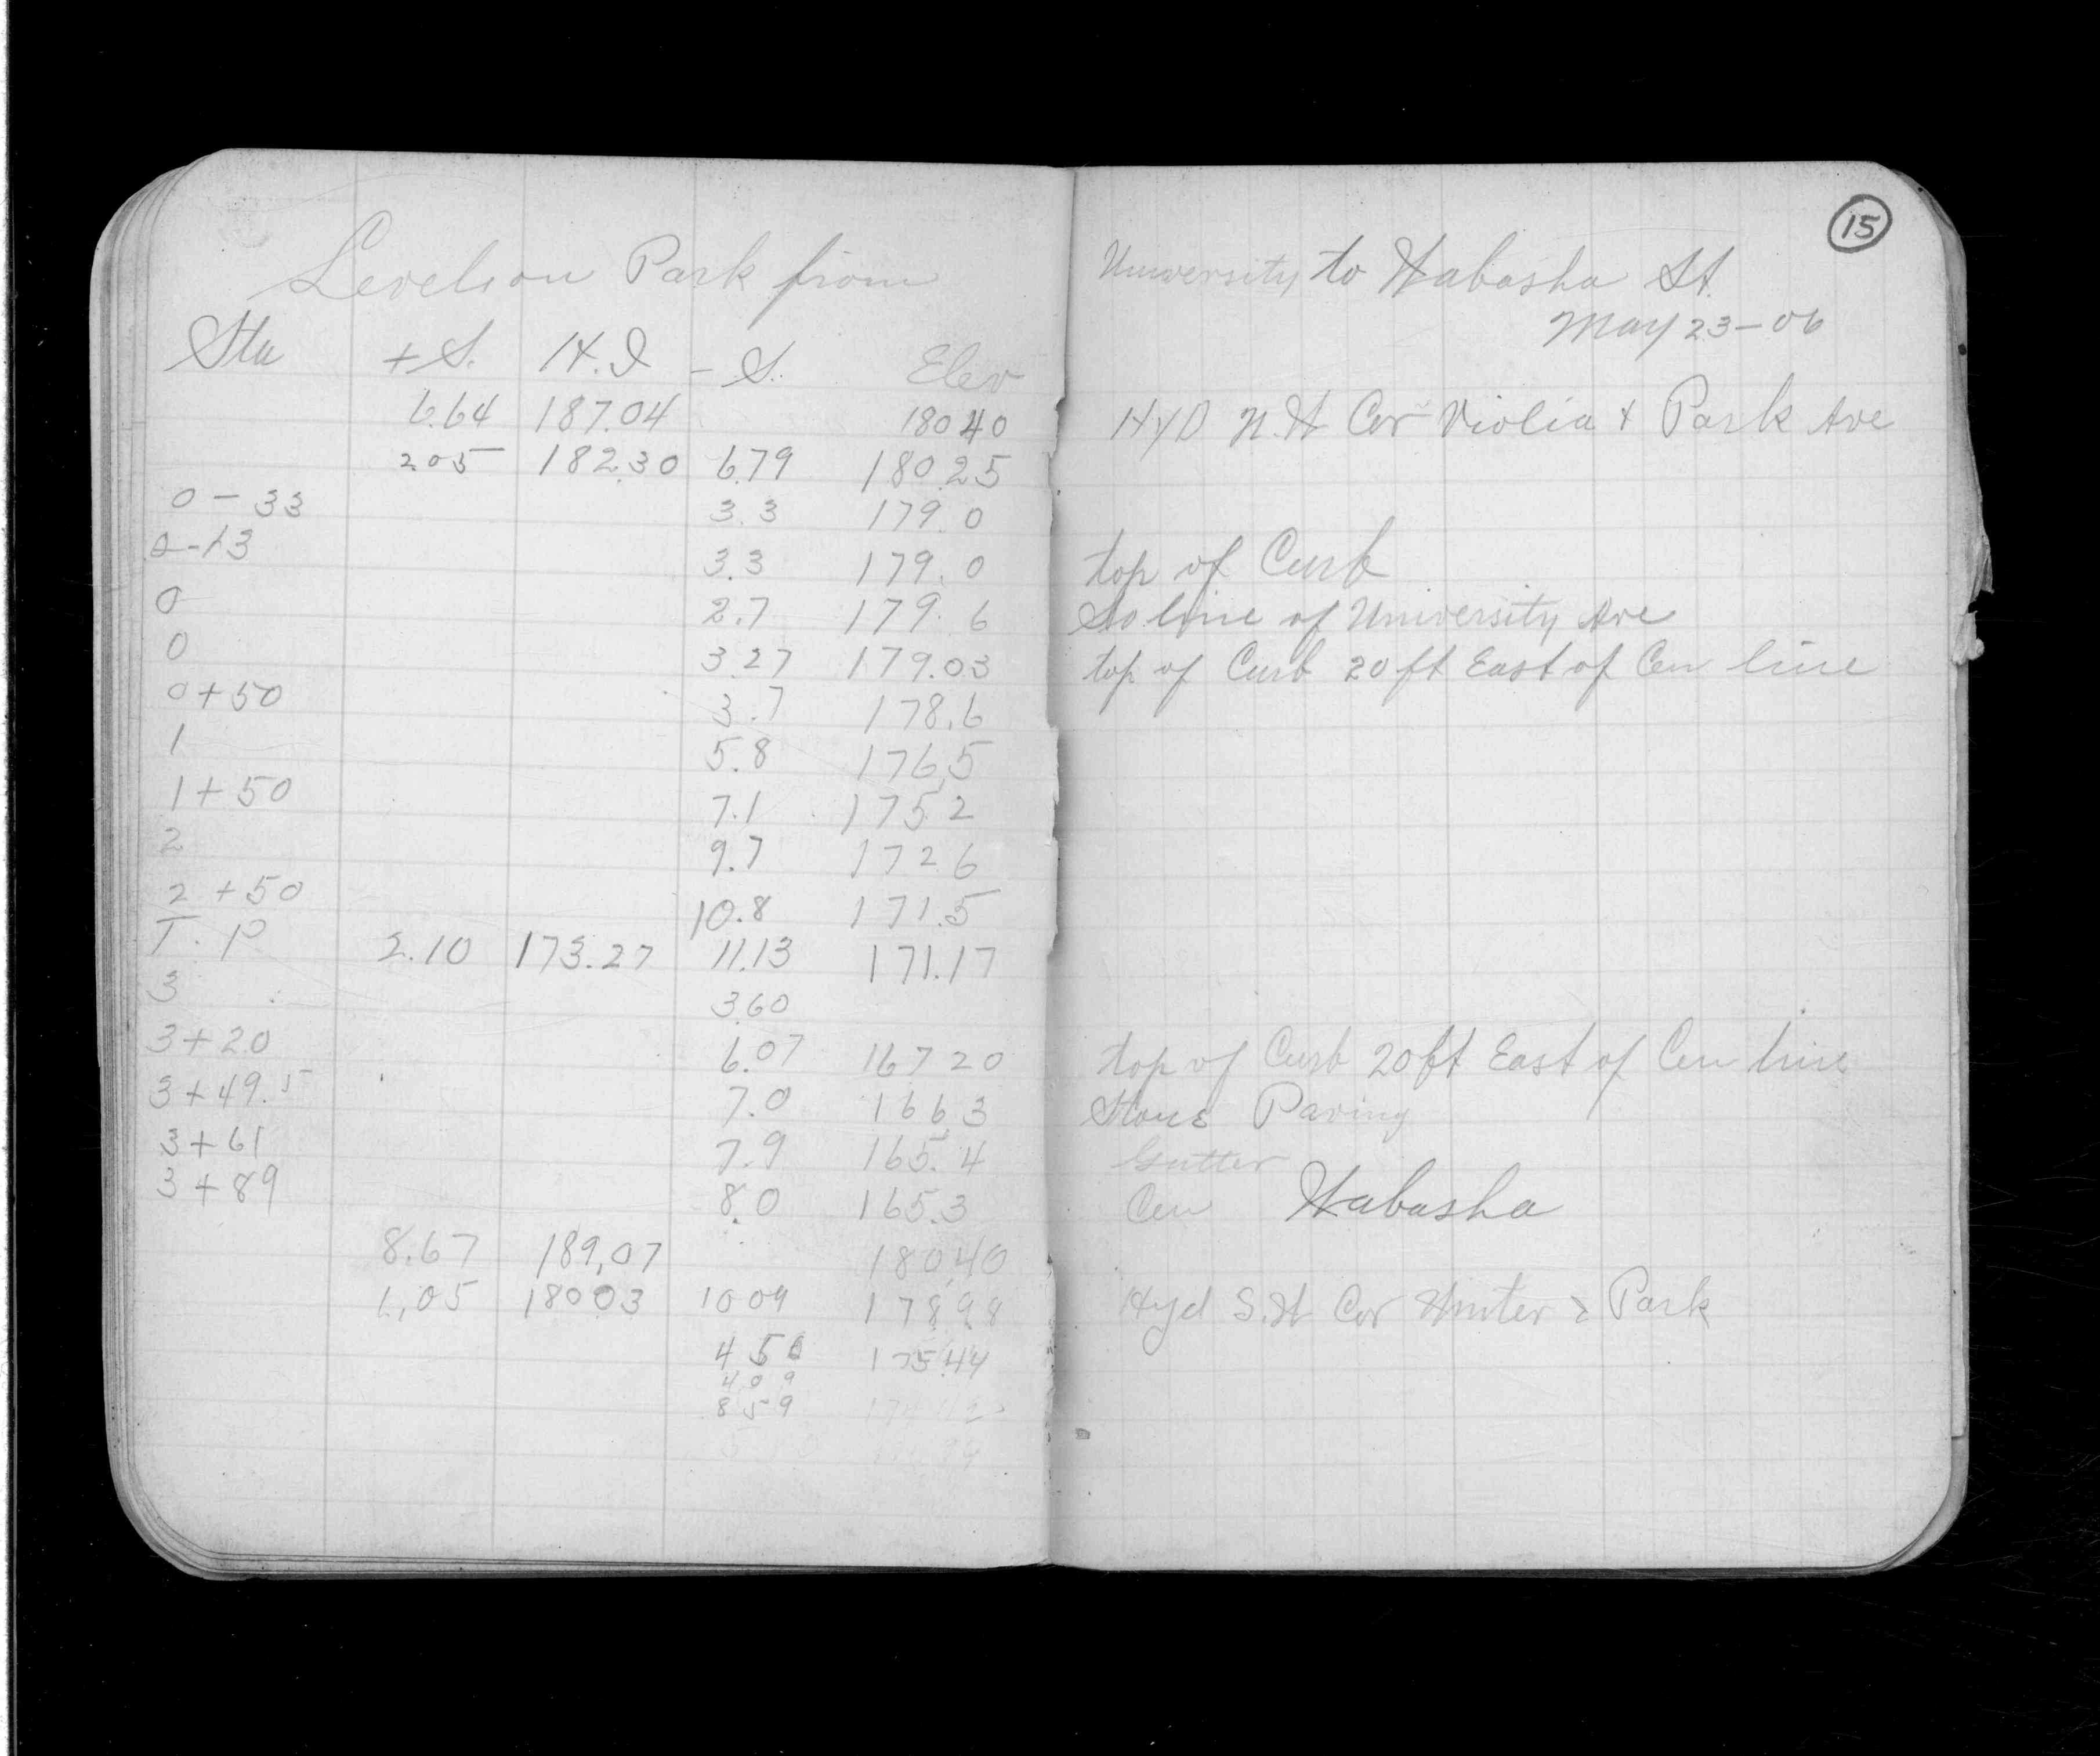 15
Levels on Park from University to Wabasha St.
May 23-06
Sta +S. H.I - S. Elev
6.64 187.04 180 40 HyD N.W Cor Violia + Park Ave
2 05 182.30 6.79 180.25
0 - 33 3.3 179.0
0-13 3.3 179.0 top of Curb
0 2.7 179.6 So line of University Ave
0 3.27 179.03 top of Curb 20 ft East of Cen line
0+50 3.7 178.6
1 5.8 176,5
1+50 7.1 175.2
2 9.7 172 6
2 +50 10.8 171.5
T.P. 2.10 173.27 11.13 171.17
3 3.60
3+20 6.07 167 20 top of Curb 20 ft East of Cen line
3+49.5 7.0 166,3 Stone Paving
3+61 7.9 165.4 Gutter
3+89 8.0 165.3 Cen Wabasha
8.67 189,07 180,40
1,05 180 03 10 09 178,98 Hyd S.W Cor Winter & Park
4 50 175.44
4 0 9
8 5 9